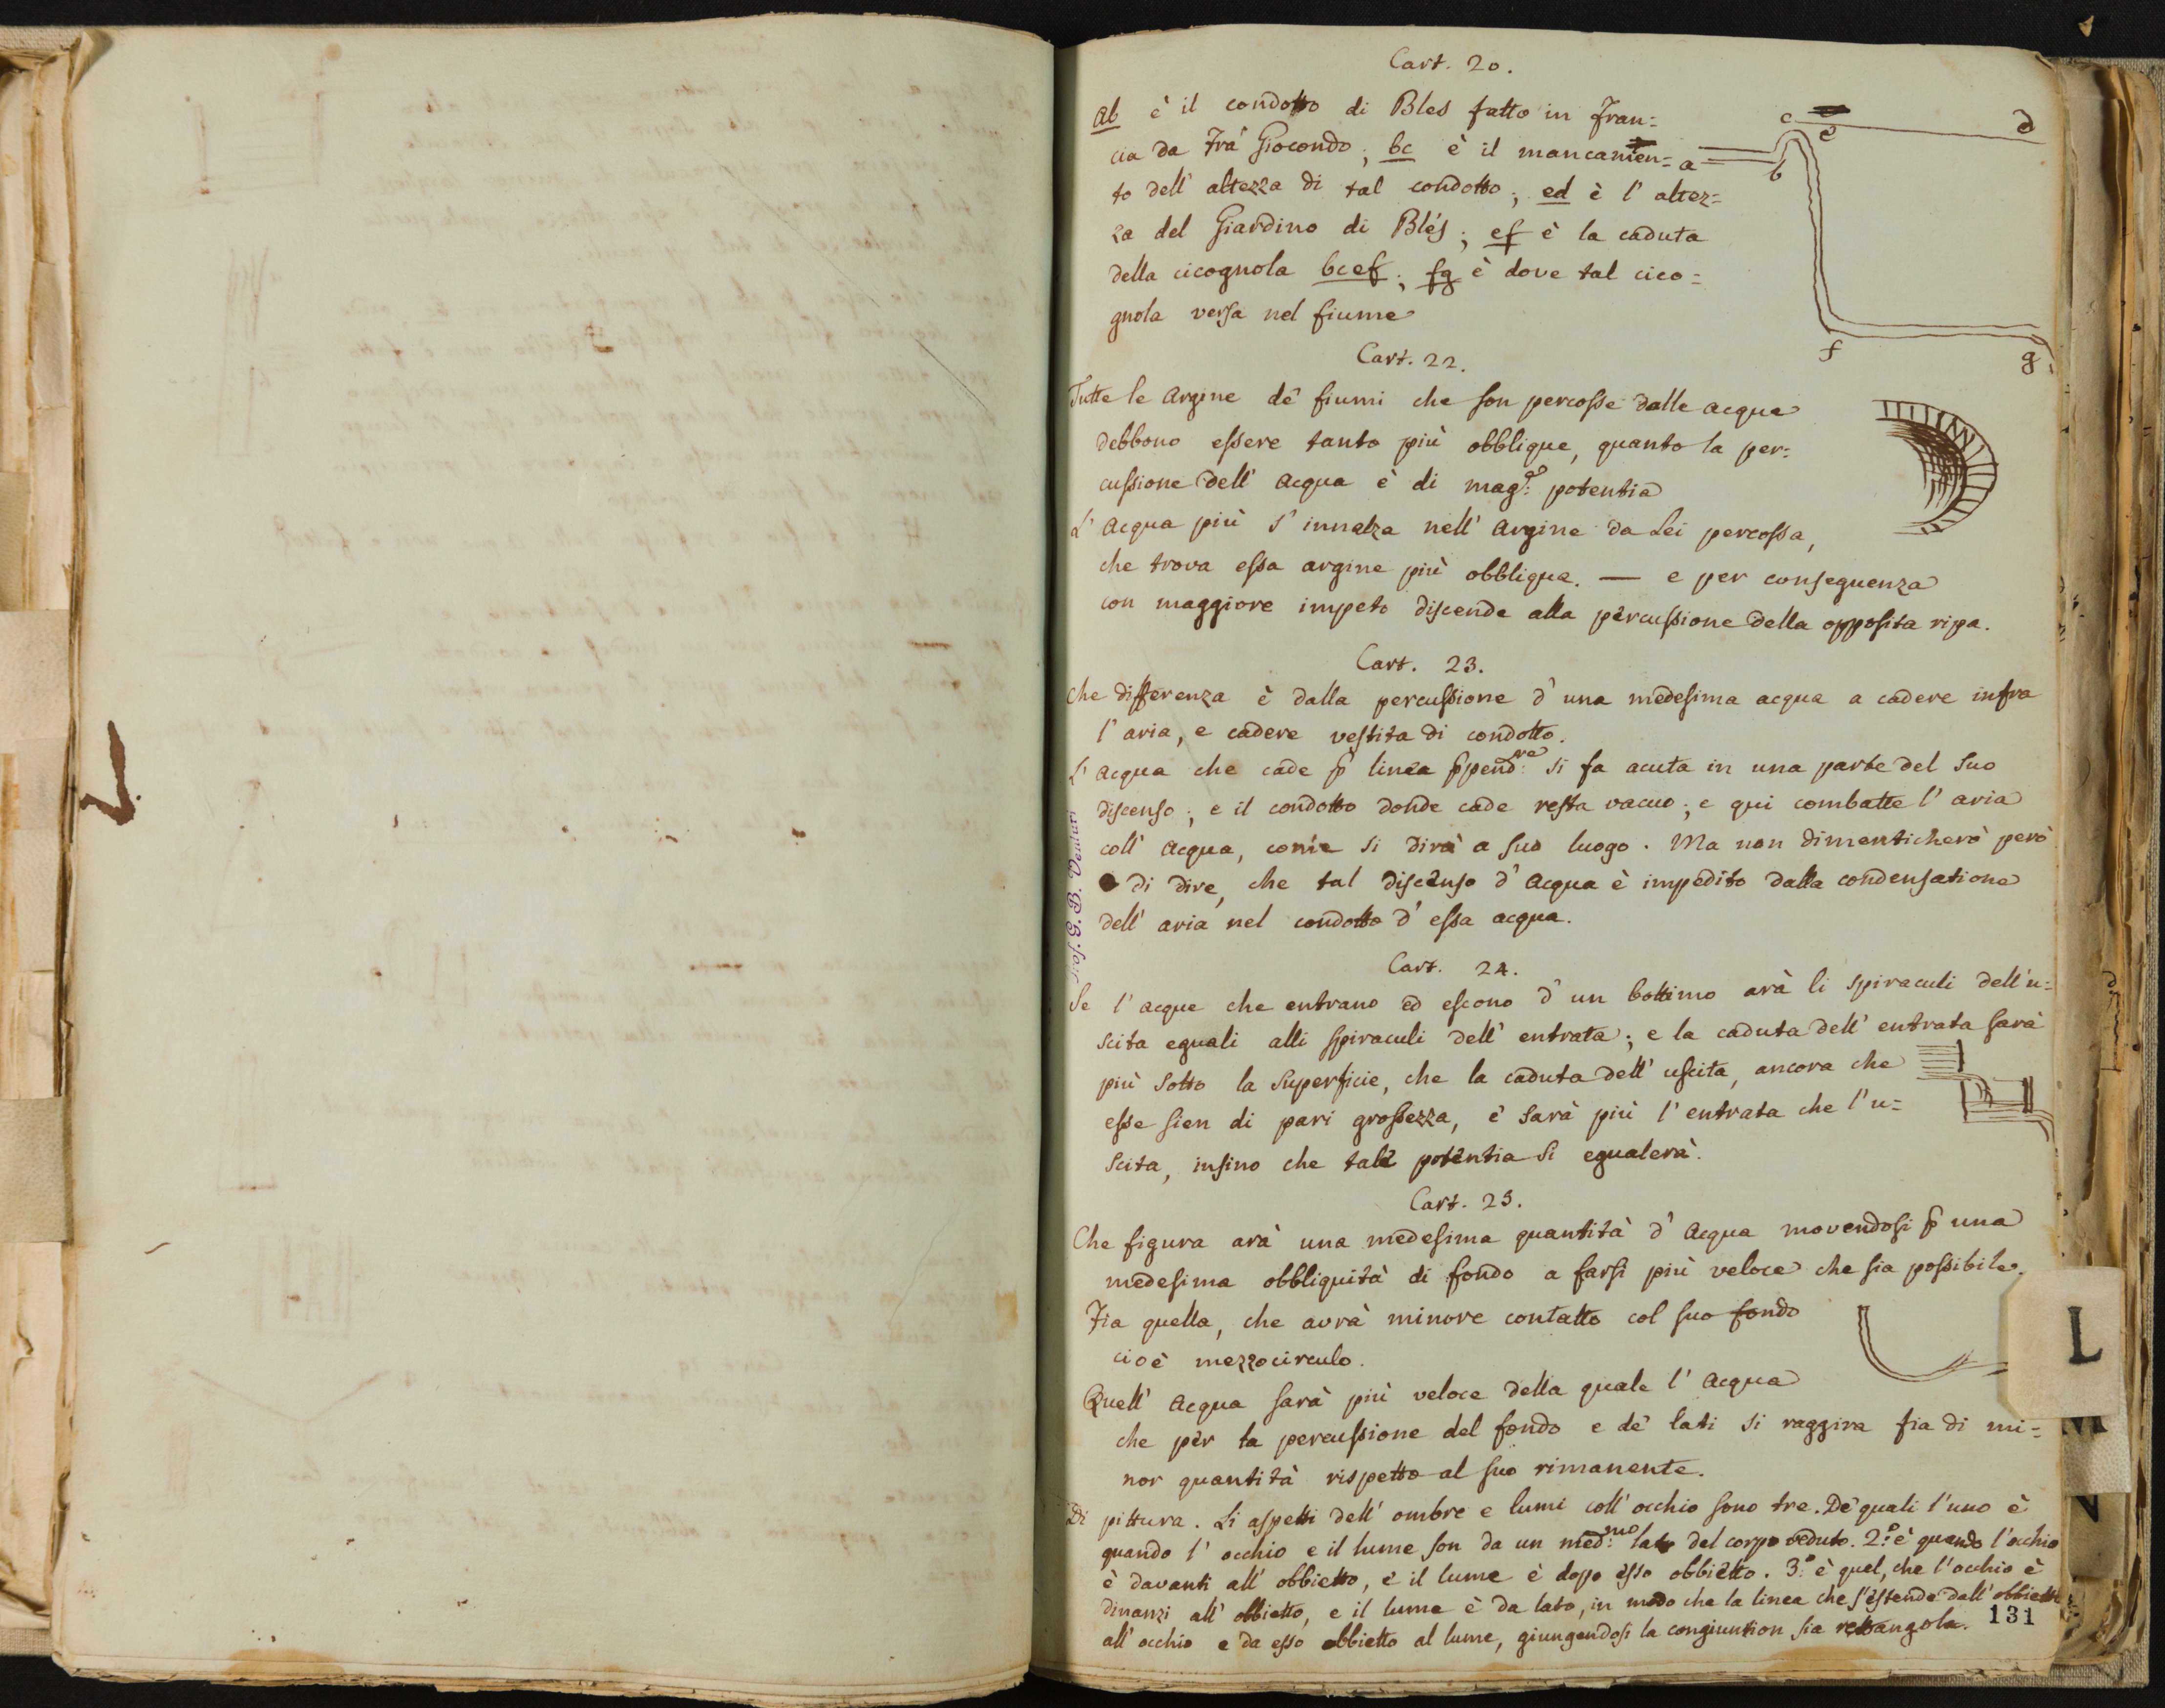 Cart. 20.
ab è il condotto di Bles fatto in Fran=
cia da Frà Giocondo; bc è il mancamen=
to dell' altezza di tal condotto; ed è l' altez=
za del Giardino di Blés; ef è la caduta
della cicognola bcef; fg è dove tal cico=
gnola versa nel fiume
c e d
a b
f g
Cart. 22.
Tutte le Argine de' fiumi che son percosse dalle acque
debbono essere tanto più obblique, quanto la per=
cussione dell' Acqua è di mag.e potentia
L' Acqua più s' innalza nell' Argine da Lei percossa,
che trova essa argine più obbliqua. — e per conseguenza
con maggiore impeto discende alla percussione della opposita ripa.
Cart. 23.
Che differenza è dalla percussione d' una medesima acqua a cadere infra
l' aria, e cadere vestita di condotto.
L' Acqua che cade p linea ppend.re si fa acuta in una parte del suo
discenso; e il condotto donde cade resta vacuo; e qui combatte l' aria
coll' Acqua, come si dirà a suo luogo. Ma non dimenticherò però
di dire, che tal discenso d' Acqua è impedito dalla condensatione
dell' aria nel condotto d' essa acqua.
Prof. G. B. Venturi
Cart. 24.
Se l' acque che entrano ed escono d' un bottino arà li spiraculi dell' u=
scita eguali alli spiraculi dell' entrata; e la caduta dell' entrata sarà
più sotto la superficie, che la caduta dell' uscita, ancora che
esse sien di pari grossezza, e' sarà più l' entrata che l' u=
scita, insino che tale potentia si egualerà.
Cart. 25.
Che figura arà una medesima quantità d' Acqua movendosi p una
medesima obbliquità di fondo a farsi più veloce che sia possibile.
Fia quella, che avrà minore contatto col suo fondo
cioè mezzocirculo.
Quell' Acqua sarà più veloce della quale l' Acqua
che per la percussione del fondo e de' lati si raggira fia di mi=
nor quantità rispetto al suo rimanente.
Di pittura. Li aspetti dell' ombre e lumi coll' occhio sono tre. De' quali l' uno è
quando l' occhio e il lume son da un med.mo lato del corpo veduto. 2.° è quando l' occhio
è davanti all' obbietto, e il lume è dopo esso obbietto. 3.° è quel, che l' occhio è
dinanzi all' obbietto, e il lume è da lato, in modo che la linea che s' estende dall' obbietto
all' occhio e da esso obbietto al lume, giungendosi la congiuntion sia rettangola.
131
L